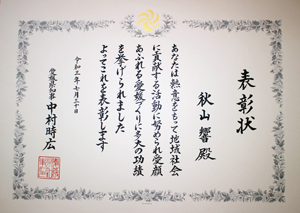 表彰状
秋山 響 殿
あなたは熱意をもって地域社会
に貢献する活動に努められ愛顔
あふれる愛媛づくりに多大の功績
を挙げられました
よってこれを表彰します
令和三年七月三十日
愛媛県知事 中村時広